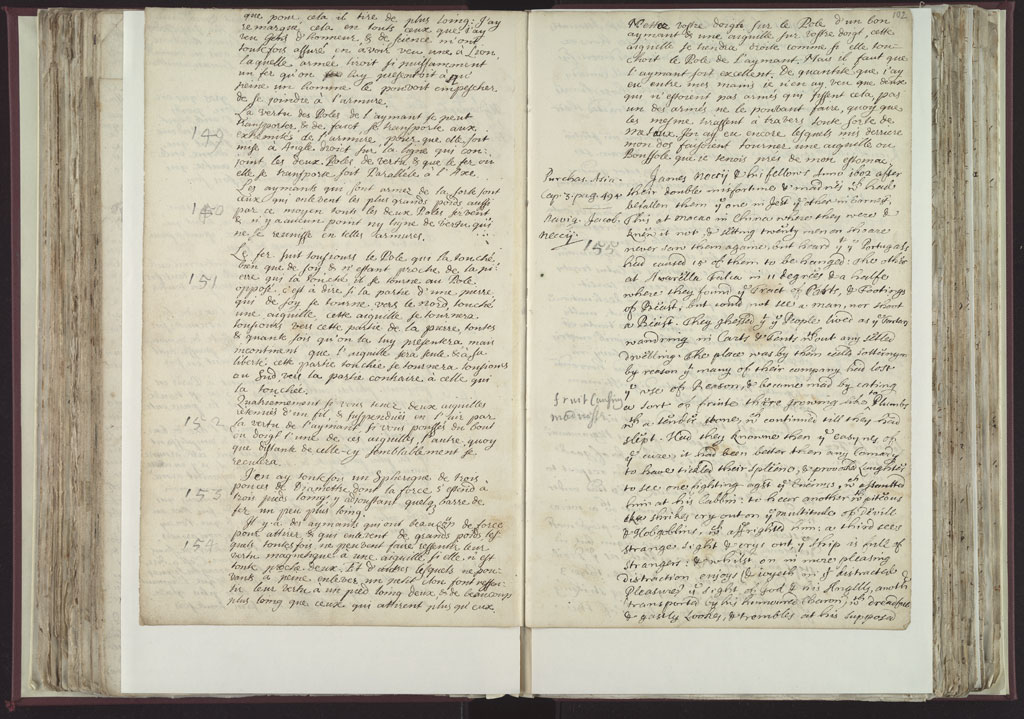 que pour cela il tire de plus loing: J'ay
remarqué cela en touts ceux que j'ay
veu Gens d'honneur, & de science m'ont
toutesfois assuré en avoir veu une à Lion
laquelle armée tiroit si puissamment
un fer qu'on luy presentoit à qu'à
peine un homme le pouvoit empescher
de se joindre à l'armure.
149
La vertu des Poles de l'aymant se peut
transporter, & de faict se transporte aux
extremités de l'armure, pourveu que elle soit
mise à Angle droict sur la ligne qui con-
joint les deux Poles de vertu, & que le fer où
elle se transporte soit Parallele à l'Axe.
150
Les aymants qui sont armez de la sorte sont
ceux qui enlevent les plus grands poids aussi
par ce moyen touts les deux Poles servent
& n'y a aucun point ny ligne de vertu qui
ne se reunisse en telles armures.
151
Le fer suit tousjours le Pole qui l'a touché
bien que de soy, & n'estant proche de la pi-
erre qui l'a touché il se tourne au Pole
opposé. c'est à dire si la partie d'une pierre
qui de soy se tourne vers le nord touche
une aiguille cette aiguille se tournera
tousjours vers cette partie de la pierre, toutes
& quante fois qu'on la luy presentera mais
incontinent que l'aiguille sera seule & à sa
liberté: cette partie touchée se tournera tousjours
au Sud, vers la partie contraire à celle qui
l'a touchée.
152
Quatriesmement si vous tenez deux aiguilles
retenues d'un fil, & suspendües en l'air par
la vertu de l'aymant. Si vous poussez du bout
du doigt l'une de ces aiguilles, l'autre, quoy
que distante de celle-cy semblablement se
reculera.
153
J'en ay toutesfois un Spherique de trois
pouces de Diametre dont la force s'espand à
trois pieds loing, y adjoustant quelq barre de
fer un peu plus loing.
154
Il y à des aymants qui ont beaucop de force
pour attirer, & qui enlevent de grands poids les
quels toutesfois ne peuvent faire ressentir leur
vertu magnetique à une aiguille si elle n'est
toute proche deux. Et d'autres lesquels ne pou-
vants à peine enlever un petit clou font ressen-
tir leur vertu à un pied loing deux & de beaucoup
plus loing que ceux qui attirent plus qu'eux
102
Mettez vostre doigts sur le Pole d'un bon
aymant & une aiguille sur vostre doigt, cette
aiguille se tiendra droite comme si elle tou-
choit le Pole de l'aymant. Mais il faut que
l'aymant soit excellent. De quantité que j'ay
eu entre mes mains je n'en ay veu que deux
qui n'estoient pas armés qui fissent cela, pas
un des armés ne le pouvant faire, quoy que
les mesme tirassent à travers toute sorte de
mataux. J'en ay eu encore lesquels mis derriere
mon dos faisoient tourner une aiguille ou
Boussole que je tenois pres de mon estomac.
Purchas. Asia.
cap. 3. pag. 191.
navig. Jacob.
Neccij.
155
James Necij & his fellows Anno 1602 after
their double misfortune & madnes wch had
befallen them ye one in Jest ye other in earnest,
This at Macao in China where they were &
knew it not, & setting twenty men on shoare
never saw them againe, but heard yt ye Portugals
had caused 15 of them to be hanged: The other
at Avarella Falsa in 11 degrees & a halfe
where they found ye Tract of Carts, & Footings
of Beasts, but could not see a man, nor shoot
a Beast. They ghessed yt ye People lived as ye Tartars
wandring in Carts & Tents wthout any setled
dwelling. The place was by them called Sottinger
by reason yt many of their company had lost
ye use of Reason, & became mad by eating
fruit causing
madnesse.
a sort of fruite there growing like to Plumbs
wth a tender stone, wch continued till they had
slept. Had they knowne then ye easynes of
ye cure, it had been better then any comedy
to have tickled their spleens, & provoked laughter
to see one fighting agst ye Enemies, wch assaulted
him at his Cabbin: to hear another wth piteous
shrikes cry out on ye multitudes of Devills
& Hobgoblins, wch affrighted him: a third sees
stranges sight & crys out, ye ship is full of
strangers: & whilst on in more pleasing
distraction enjoys & joyeth in yt distracted
Pleasures ye sight of God & his Angells, anoth
transported by his humoured Charon wth dreadfull
& gastly Lookes, & trembles at his supposed